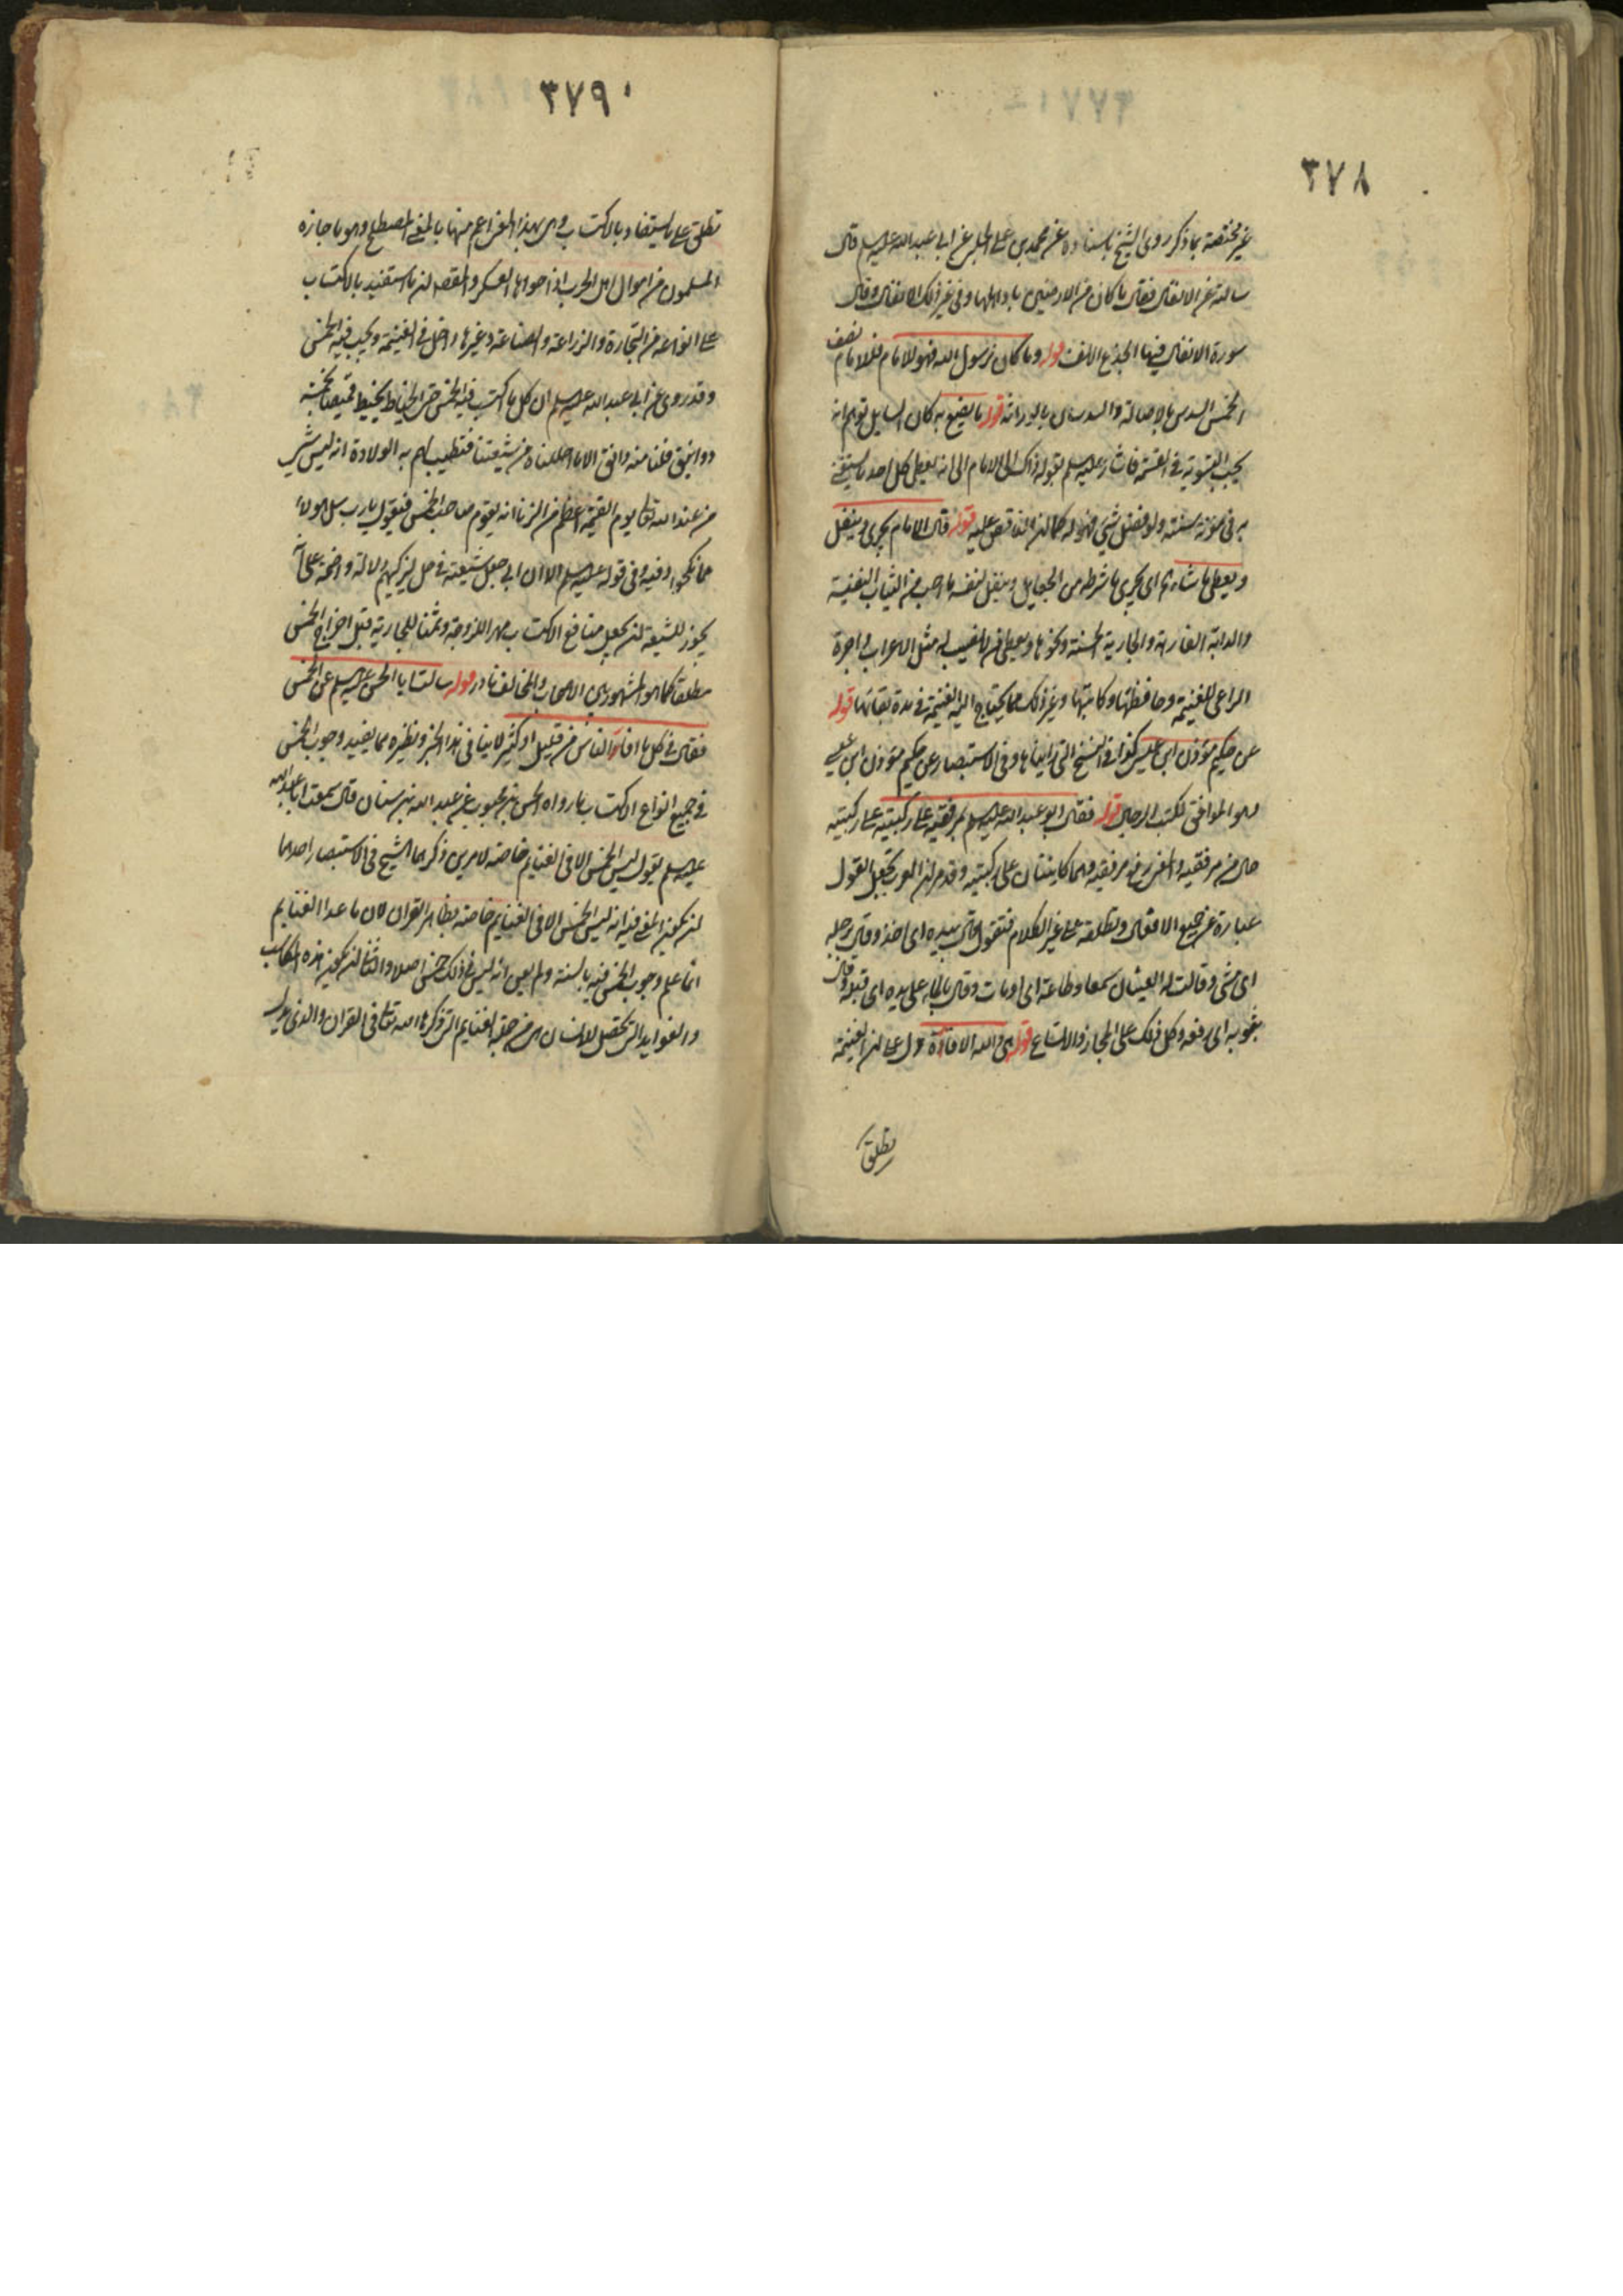 ٣٧٨
غير مختصة بما ذكر روى الشيخ باسناده عن محمد بن علي الحلبي عن ابي عبد الله عليه السلم قال
سالته عن الانفال فقال ما كان من الارضين باد اهلها وفي غير ذلك الانفال وقال
سورة الانفال فيها الجذع الانف قوله وما كان لرسول الله فهو للامام فللامام نصف
الخمس السدس بالاصالة والسدسان بالوراثة قوله ما يصنع به كان السايل توهم انه
يجب التسوية في القسمة فاشار عليه السلم بقوله ذاك الى الامام الى انه يعطي كل احد ما يستغني
به في مؤنة سنته ولو فضل شيء فهو له كما ان الناقص عليه قوله قال الامام يجري وينفل
ويعطي ما شاء اي يجري ما شرطه من الجعايل وينفل لنفسه ما احب من الثياب النفيسة
والدابة الفارهة والجارية الحسنة ونحوها ويعطي من لا نصيب له مثل الاعراب واجرة
الراعي للغنيمة وحافظها وكاتبها وغير ذلك مما يحتاج اليه الغنيمة في مدة بقائها قوله
عن حكيم مؤذن ابن عيسى كذا في النسخ التي رايناها وفي الاستبصار عن حكيم مؤذن ابن عبس
وهو الموافق لكتب الرجال قوله فقال ابو عبد الله عليه السلم بمرفقيه على ركبتيه على ركبتيه
حال من مرفقيه والمعنى رفع مرفقيه وهما كاينتان على ركبتيه وقد مر ان العرب تجعل القول
عبارة عن جميع الافعال وتطلقه على غير الكلام فتقول قال بيده اي اخذ وقال برجله
اي مشى وقالت له العينان سمعا وطاعة اي اومات وقال بالماء على يده اي قلبه وقال
بثوبه اي رفعه وكل ذلك على المجاز والاتساع قوله هي والله الافادة دل على ان الغنيمة
تطلق
٣٧٩
تطلق على ما يستفاد بالاكتساب وهي بهذا المعنى اعم منها بالمعنى المصطلح وهو ما حازه
المسلمون من اموال اهل الحرب اذا حواها العسكر والمقصد ان ما استفيد بالاكتساب
على انواعه من التجارة والزراعة والصناعة وغيرها داخل في الغنيمة ويجب فيه الخمس
وقد روى عن ابي عبد الله عليه السلم ان كل ما اكتسب فيه الخمس حتى الخياط يخيط قميصا بخمسة
دوانيق فلنا منه دانق الا ما احللناه من شيعتنا لتطيب لهم به الولادة انه ليس شيء
من عند الله تعالى يوم القيمة اعظم من الزنا انه يقوم صاحب الخمس فيقول يا رب سل هولاء
بما نكحوا وفيه وفي قوله عليه السلم الا ان ابي جعل شيعته في حل ليزكيهم دلالة واضحة على انه
يجوز للشيعة ان يجعل منافع الاكتساب مهرا للزوجة وثمنا للجارية قبل اخراج الخمس
مطلقا كما هو المشهور بين الاصحاب والمخالف نادر قوله سالت ابا الحسن عليه السلم عن الخمس
فقال في كل ما افاد الناس من قليل او كثير لا ينافي هذا الخبر ونظيره مما يفيد وجوب الخمس
في جميع انواع الاكتساب ما رواه الحسن بن محبوب عن عبد الله بن سنان قال سمعت ابا عبد الله
عليه السلم يقول ليس الخمس الا في الغنايم خاصة لامرين ذكرهما الشيخ في الاستبصار احدهما
ان يكون المعنى فيه انه ليس الخمس الا في الغنايم خاصة بظاهر القران لان ما عدا الغنايم
انما علم وجوب الخمس فيه بالسنة ولم يعن انه ليس في ذلك خمس اصلا والثاني ان يكون هذه المكاسب
والفوايد التي تحصل للانسان هي من جملة الغنايم التي ذكرها الله تعالى في القران والذي يدل